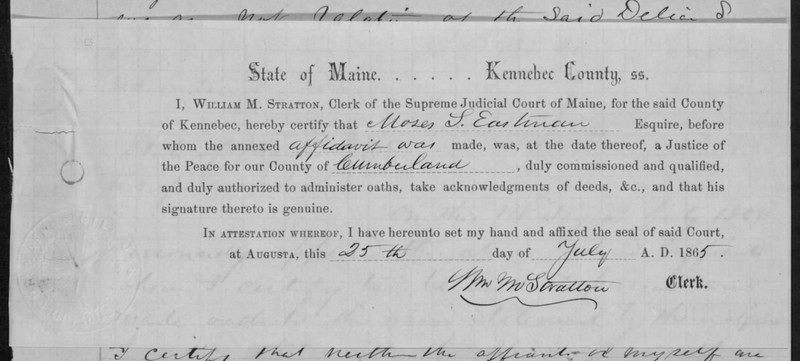 not relative of the said Delia S
State of Maine. . . . . . Kennebec County, ss.
I, William M. Stratton, Clerk of the Supreme Judicial Court of Maine, for the said County
of Kennebec, hereby certify that Moses S. Eastman Esquire, before
whom the annexed affidavit was made, was, at the date thereof, a Justice of
the Peace for our County of Cumberland, duly commissioned and qualified,
and duly authorized to administer oaths, take acknowledgments of deeds, &c., and that his
signature thereto is genuine.
In attestation whereof, I have hereunto set my hand and affixed the seal of said Court,
at Augusta, this 25th day of July A. D. 1865.
Wm M Stratton Clerk.
I certify that neither the affiant or myself are